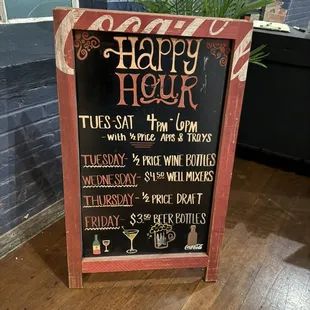 Coca-Cola
HAPPY
HOUR
TUES-SAT 4PM-6PM
-WITH ½ PRICE APPS & TROYS
TUESDAY- ½ PRICE WINE BOTTLES
WEDNESDAY- $4.50 WELL MIXERS
THURSDAY- ½ PRICE DRAFT
FRIDAY- $3.50 BEER BOTTLES
Coca-Cola